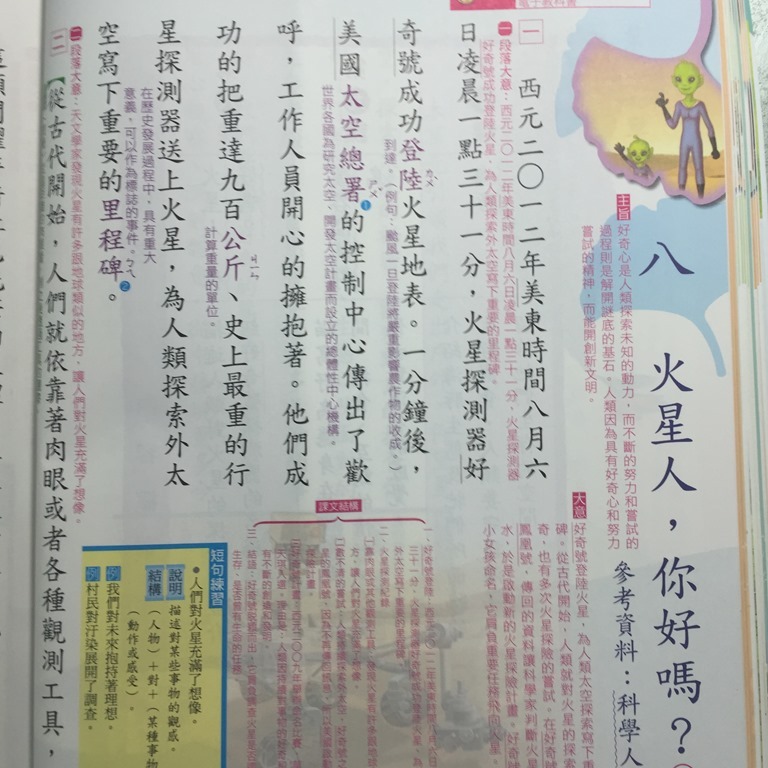 電子教科書
八 火星人，你好嗎？
參考資料：科學人
主旨
好奇心是人類探索未知的動力，而不斷的努力和嘗試的
過程則是解開謎底的基石。人類因為具有好奇心和努力
嘗試的精神，而能開創新文明。
大意
好奇號登陸火星，為人類太空探索寫下重
碑。從古代開始，人類就對火星的探索
奇，也有多次火星探險的嘗試。在好奇號
鳳凰號，傳回的資料讓科學家判斷火星
水，於是啟動新的火星探險計畫。好奇號
小女孩命名，它肩負重要任務飛向火星。
一
西元二〇一二年美東時間八月六
一 段落大意：西元二〇一二年美東時間八月六日凌晨一點三十一分，火星探測器
好奇號成功登陸火星，為人類探索外太空寫下重要的里程碑。
日凌晨一點三十一分，火星探測器好
奇號成功登陸火星地表。一分鐘後，
ㄌㄨ
到達。（例句：颱風一旦登陸將嚴重影響農作物的收成。）
美國太空總署的控制中心傳出了歡
ㄕㄨ
❶
世界各國為研究太空、開發太空計畫而設立的總體性中心機構。
呼，工作人員開心的擁抱著。他們成
功的把重達九百公斤、史上最重的行
ㄐㄧㄣ
計算重量的單位。
星探測器送上火星，為人類探索外太
在歷史發展過程中，具有重大
意義，可以作為標誌的事件。
空寫下重要的里程碑。
ㄅㄟ
❷
二 段落大意：天文學家發現火星有許多跟地球類似的地方，讓人們對火星充滿了想像。
二
【從古代開始，人們就依靠著肉眼或者各種觀測工具，
課文結構
一、好奇號登陸：西元二〇一二年美東時間八月六日
三十一分，火星探測器好奇號成功登陸火星，為
外太空寫下重要的里程碑。
二、火星探測紀錄
短句練習
●人們對火星充滿了想像。
說明 描述對某些事物的觀感。
結構 （人物）＋對＋（某種事物
（動作或感受）。
例 我們對未來抱持著理想。
例 村民對汙染展開了調查。